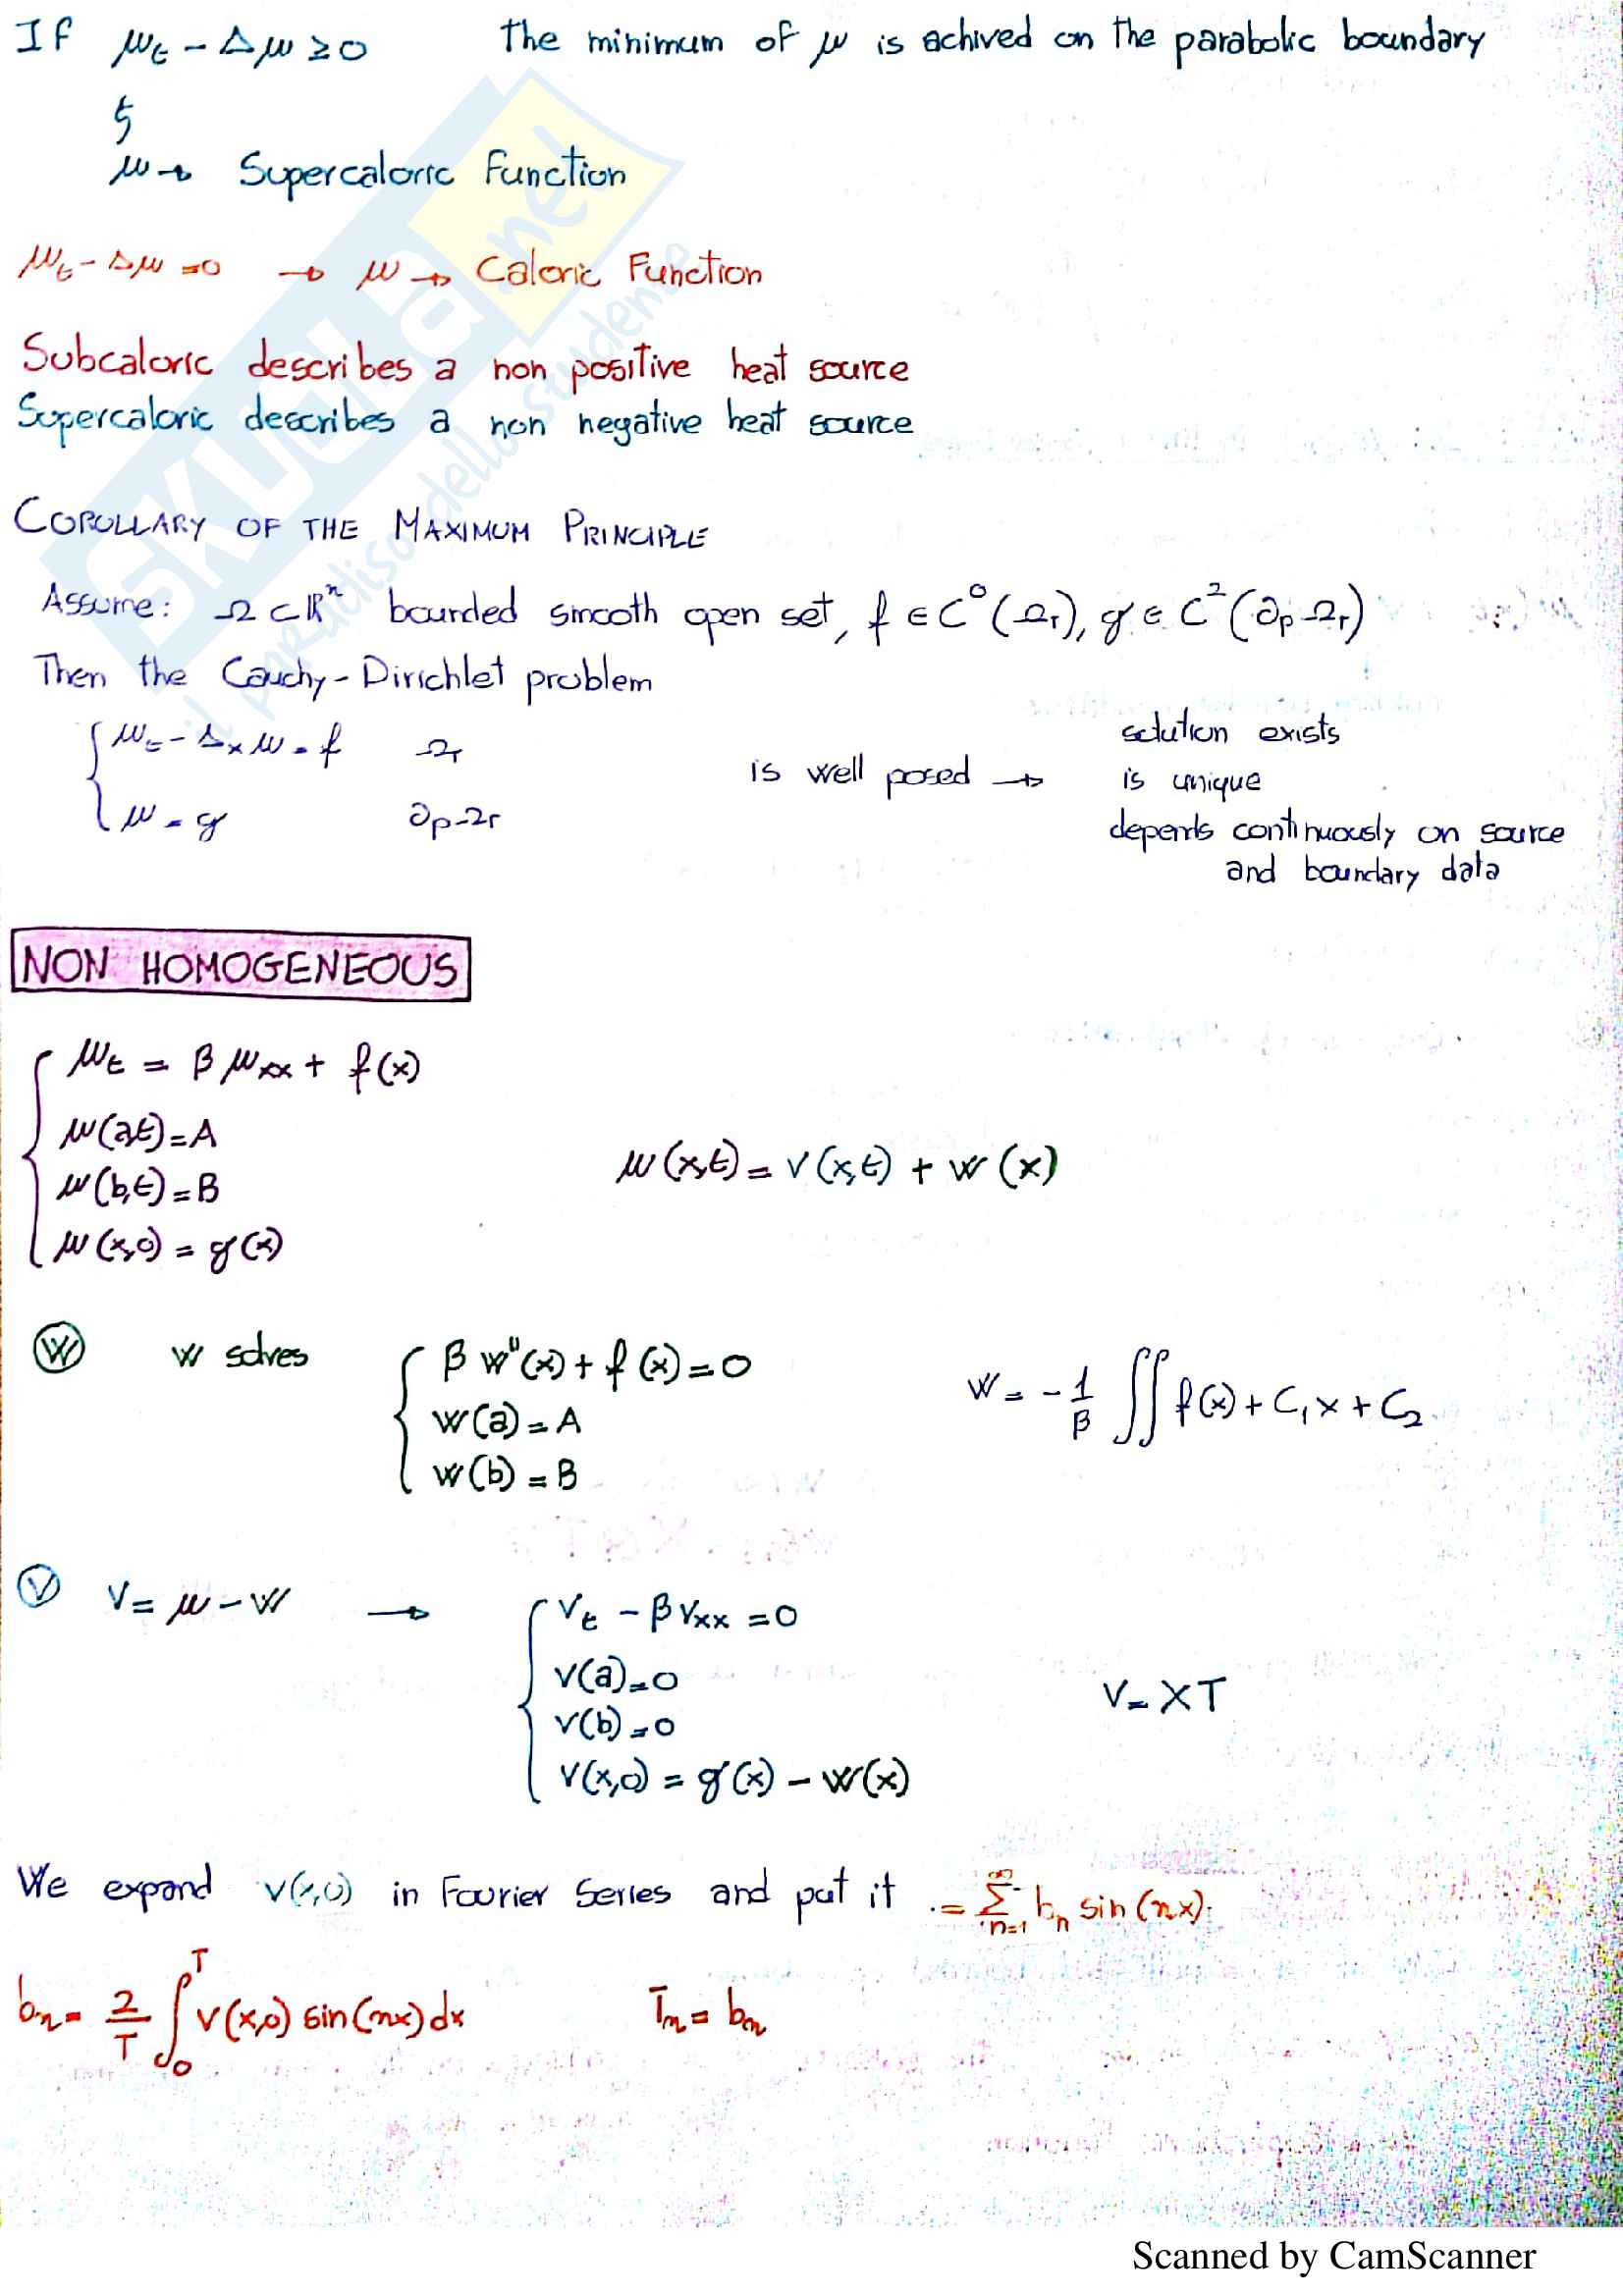 If μt - Δμ ≥ 0 The minimum of μ is achived on the parabolic boundary
μ → Supercaloric Function
μt - Δμ = 0 → μ → Caloric Function
Subcaloric describes a non positive heat source
Supercaloric describes a non negative heat source
COROLLARY OF THE MAXIMUM PRINCIPLE
Assume: Ω ⊂ ℝⁿ bounded smooth open set, f ∈ C⁰(ΩT), g ∈ C²(∂pΩT)
Then the Cauchy-Dirichlet problem
{ μt - Δx μ = f ΩT
μ = g ∂pΩT
is well posed →
solution exists
is unique
depends continuously on source
and boundary data
NON HOMOGENEOUS
{ μt = β μxx + f(x)
μ(a,t) = A
μ(b,t) = B
μ(x,0) = g(x)
μ(x,t) = v(x,t) + w(x)
W w solves { β w''(x) + f(x) = 0
w(a) = A
w(b) = B
w = - 1/β ∬ f(x) + C₁x + C₂
V v = μ - w → { vt - β vxx = 0
v(a) = 0
v(b) = 0
v(x,0) = g(x) - w(x)
v = XT
We expand v(x,0) in Fourier Series and put it = ∑ n=1 ∞ bn sin(nx)
bn = 2/T ∫₀ᵀ v(x,0) sin(nx) dx Tn = bn
SKUOLA.net
il paradiso dello studente
Scanned by CamScanner